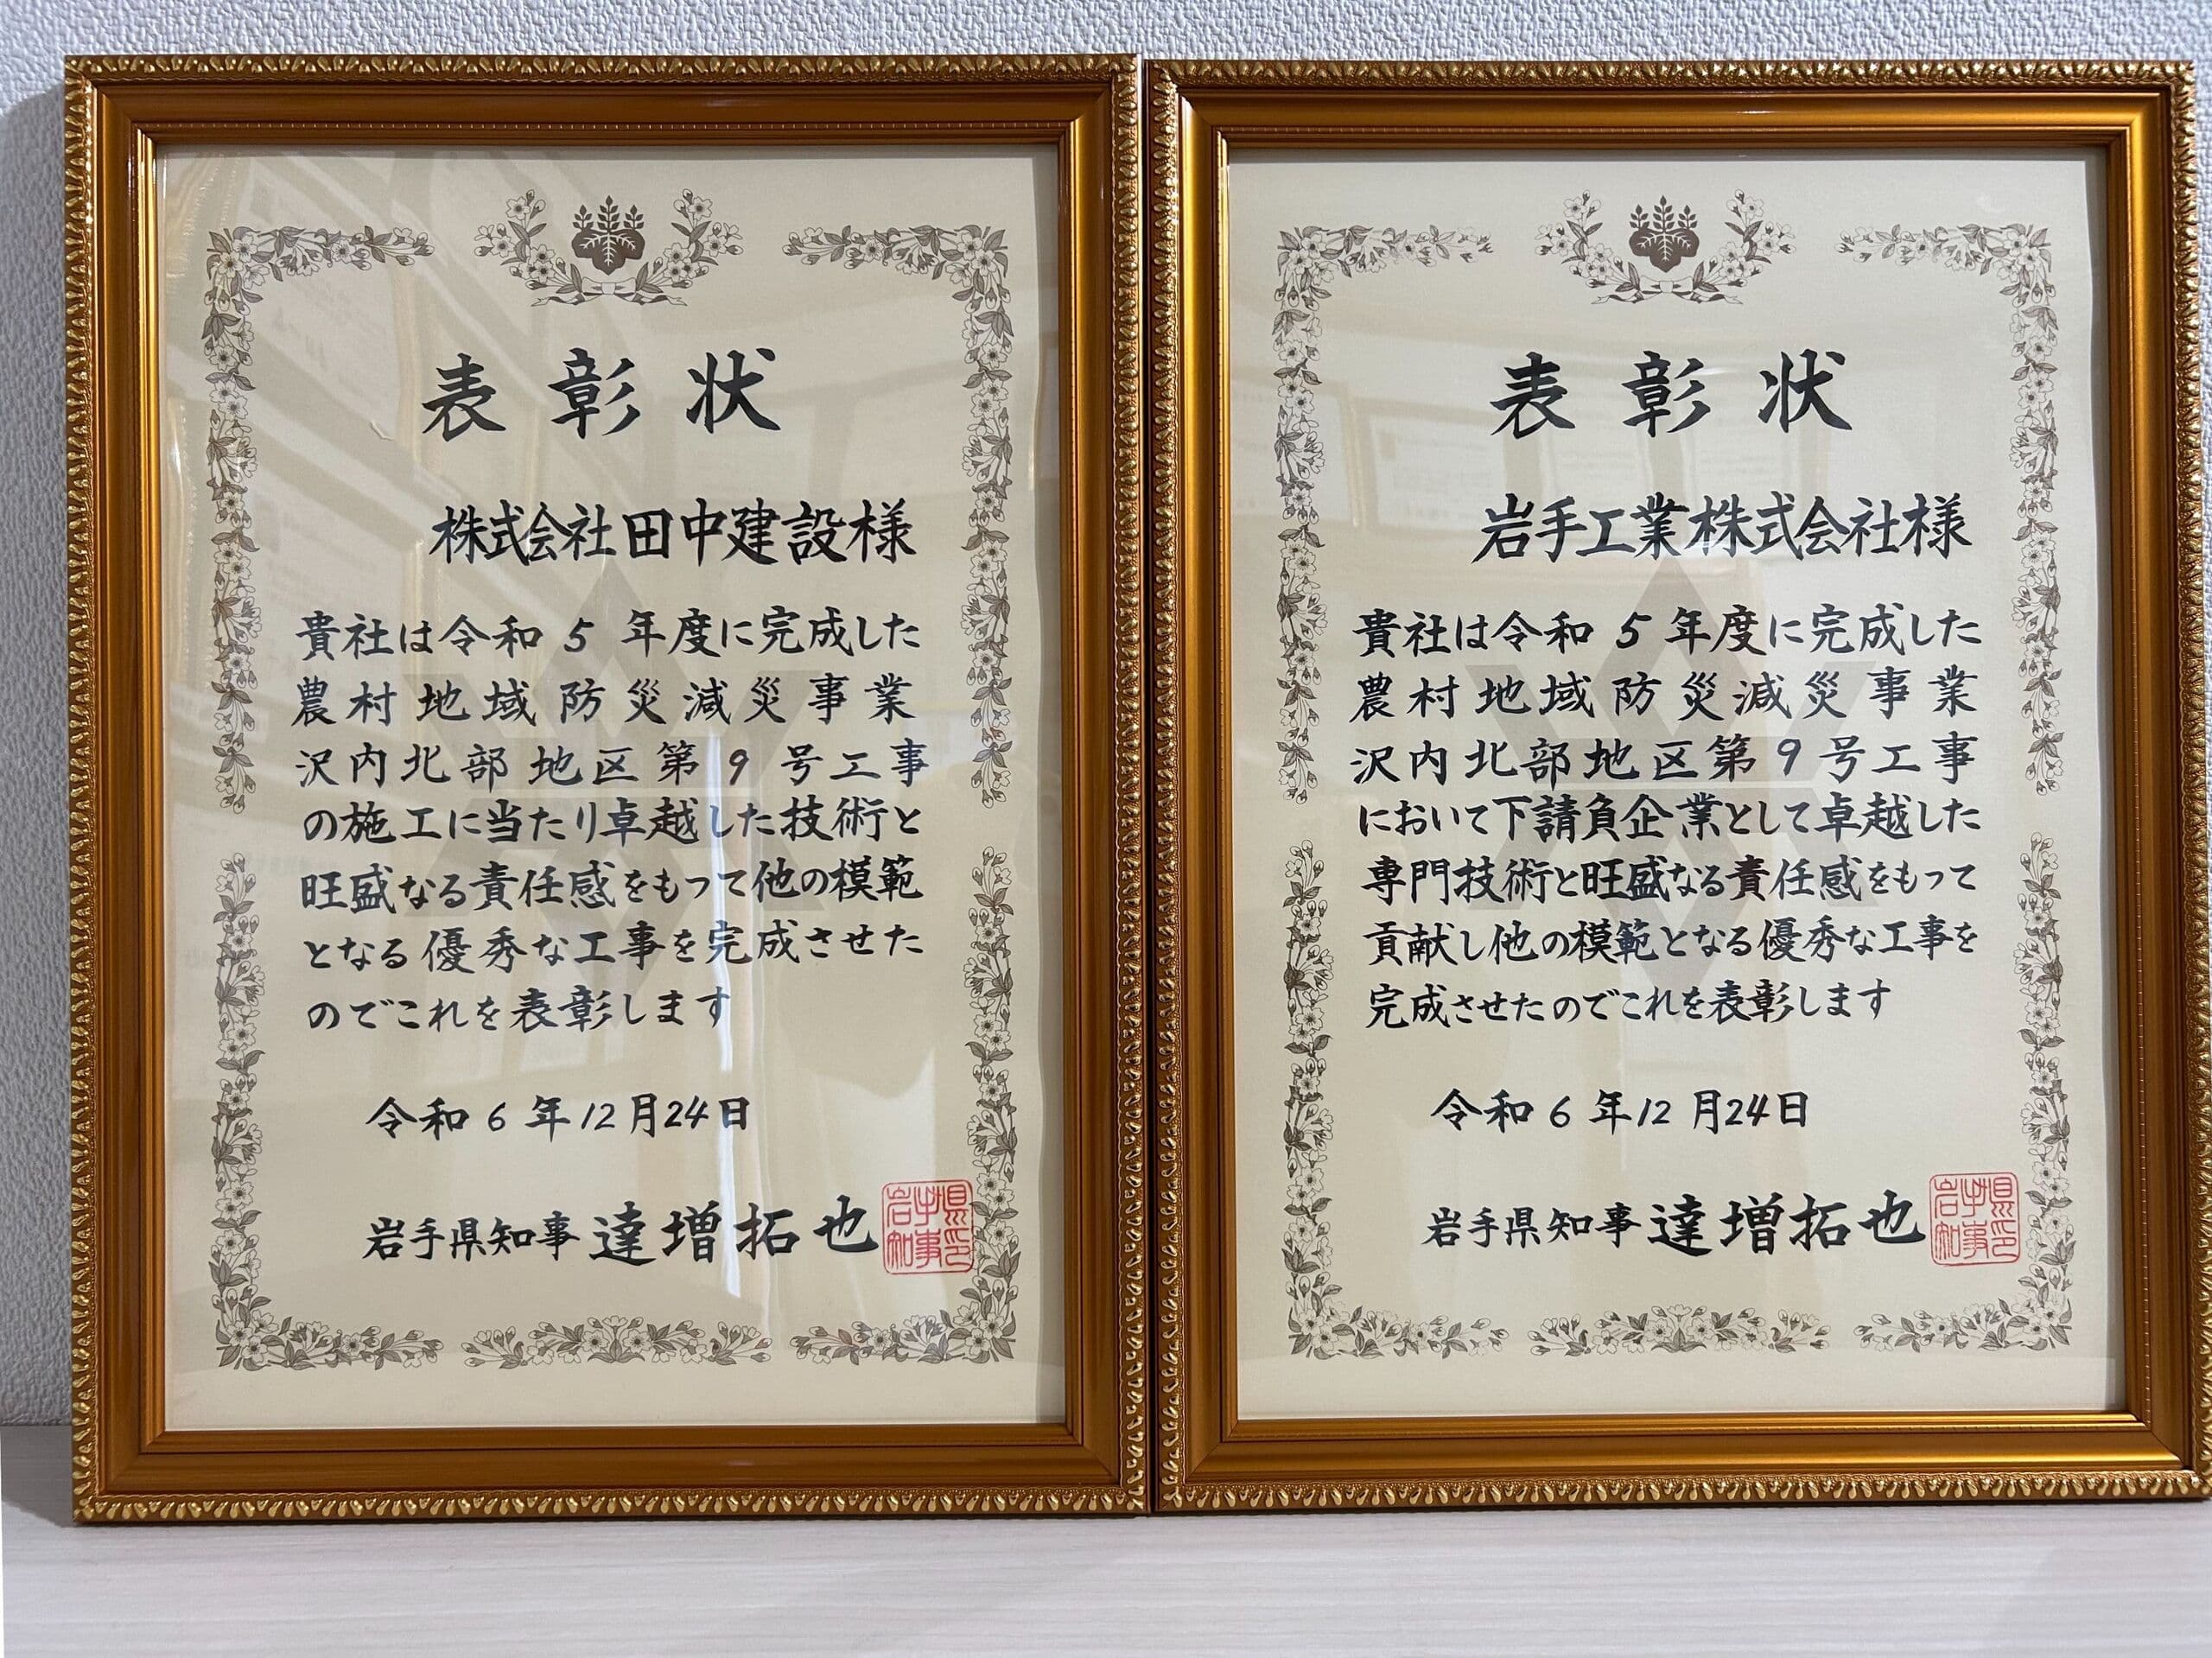 表彰状
株式会社田中建設様
貴社は令和5年度に完成した
農村地域防災減災事業
沢内北部地区第9号工事
の施工に当たり卓越した技術と
旺盛なる責任感をもって他の模範
となる優秀な工事を完成させた
のでこれを表彰します
令和6年12月24日
岩手県知事 達増拓也
岩手県知事印
表彰状
岩手工業株式会社様
貴社は令和5年度に完成した
農村地域防災減災事業
沢内北部地区第9号工事
において下請負企業として卓越した
専門技術と旺盛なる責任感をもって
貢献し他の模範となる優秀な工事を
完成させたのでこれを表彰します
令和6年12月24日
岩手県知事 達増拓也
岩手県知事印